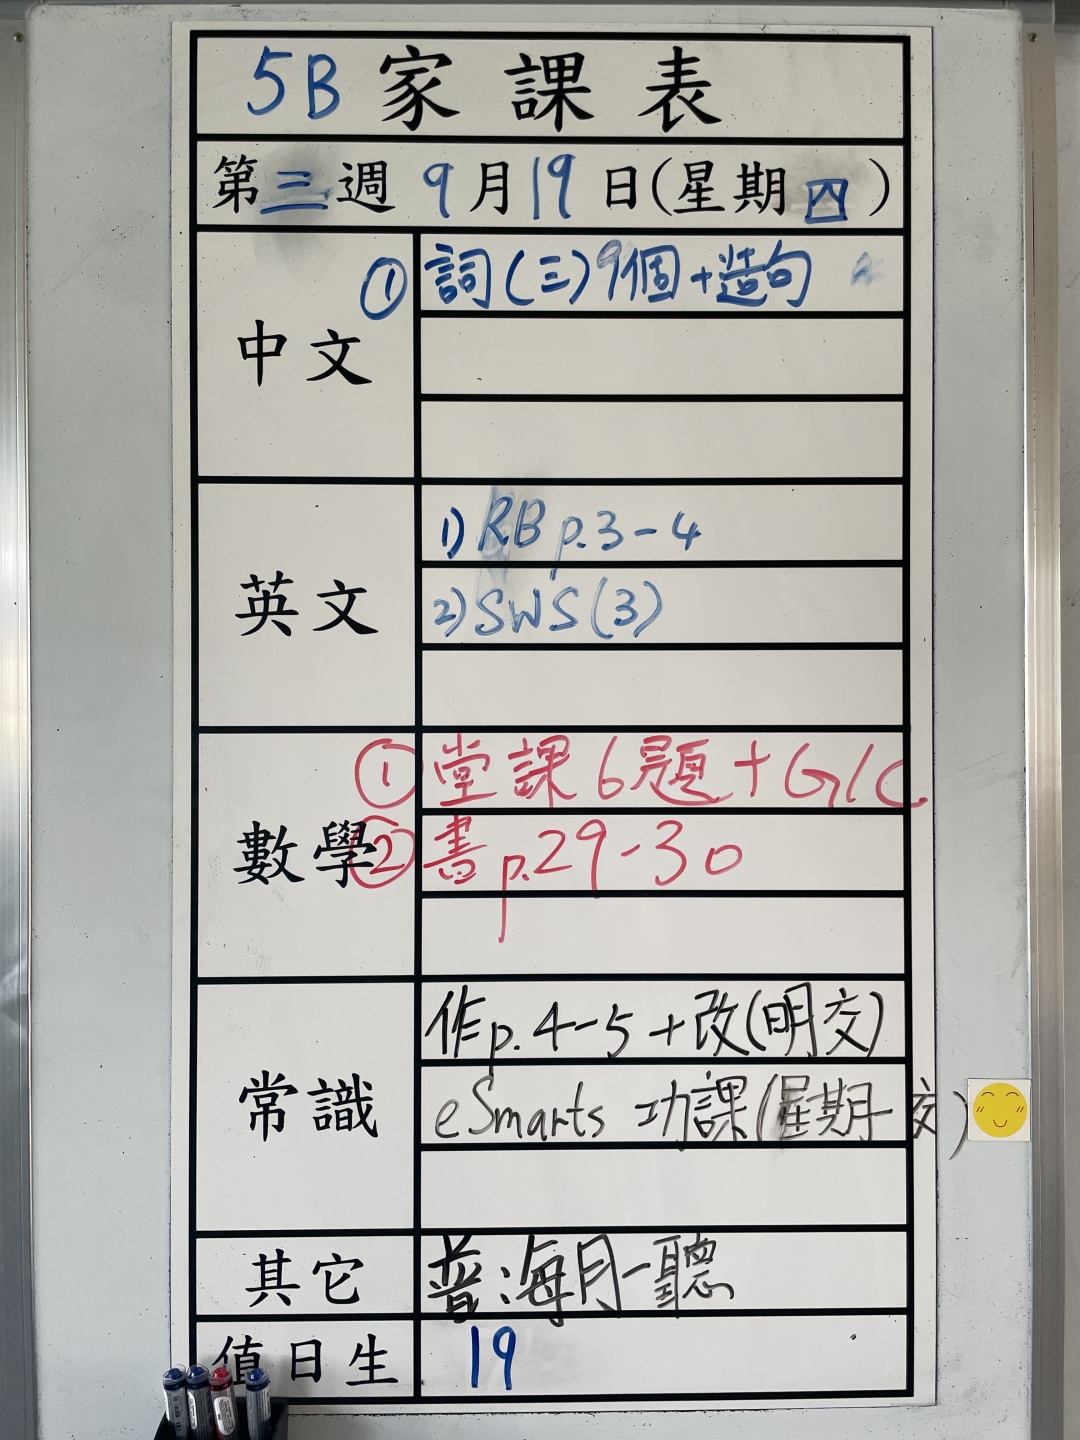 5B 家課表
第三週 9月19日(星期四)
中文
① 詞(三)9個+造句
英文
1) RB p.3-4
2) SWS(3)
數學
① 堂課6題+G/C
② 書p.29-30
常識
作p.4-5+改(明交)
eSmarts 功課(星期一交)
其它
普:每月一聽
值日生
19